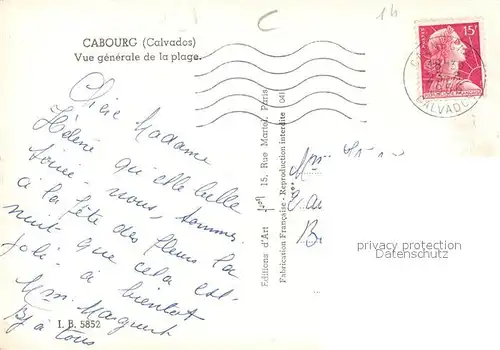 C
14
CABOURG (Calvados)
Vue générale de la plage.
15F
CALVADOS
Chère Madame
Hélène qu'elle belle
soirée - nous, sommes
à la fête des fleurs la
nuit que cela est
joli. à bientôt
Mme Marguerit
à tous
I. B. 5852
Editions d'Art 15, Rue Martel, Paris
Fabrication Française - Reproduction interdite
Mme
privacy protection
Datenschutz